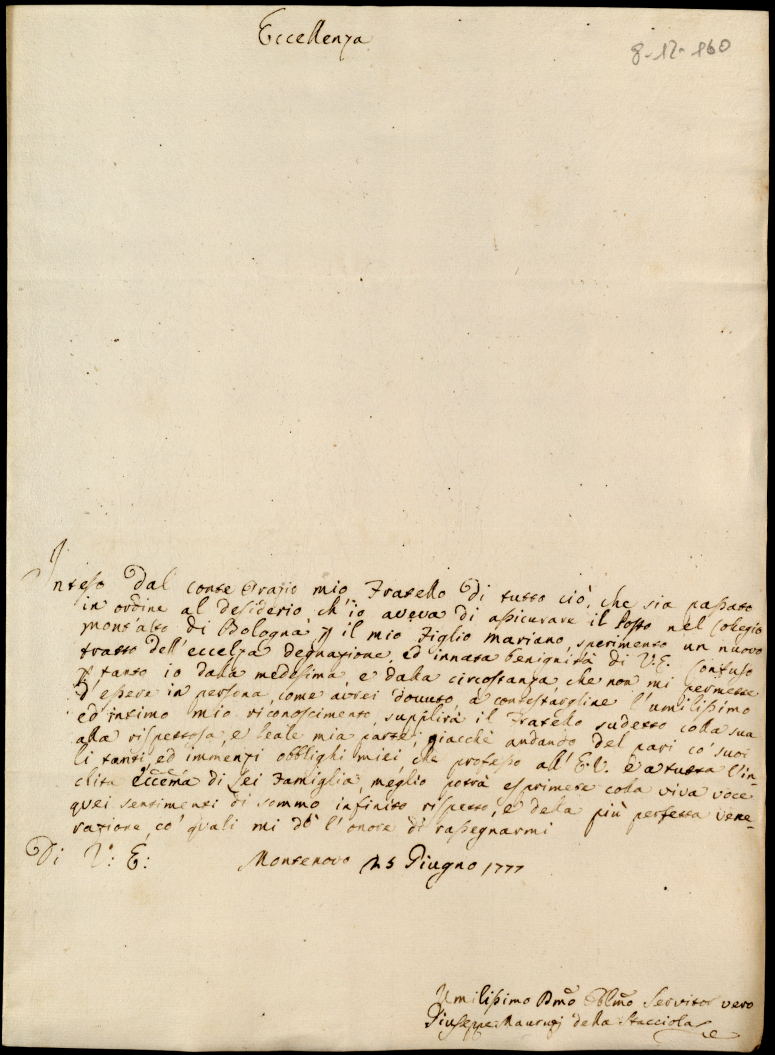 Eccellenza
8-12-160
Inteso dal Conte Orazio mio Fratello di tutto ciò, che sia passato
in ordine al desiderio ch'io aveva di assicurare il Posto nel Collegio
Mont'alto di Bologna p il mio Figlio Mariano, sperimento un nuovo
tratto dell'eccelza degnazione, ed innata benignità di V.E. Confuso
p tanto io dalla medesima, e dalla circostanza, che non mi permette
d'essere in persona, come avrei dovuto, a contestargline l'umilissimo
ed intimo mio riconoscimento, supplirà il Fratello sudetto colla sua
alla rispettosa, e leale mia parte; giacchè andando del pari co' suoi
li tanti, ed immenzi obblighi miei, che professo all'E.V. e a tutta l'in-
clita Eccma di Lei Famiglia, meglio potrà esprimere colla viva voce
quei sentimenti di sommo infinito rispetto, e della più perfetta vene-
razione, co' quali mi dò l'onore di rassegnarmi
Di V: E: Montenovo 25 Giugno 1777
Umilissimo Dmo Obblmo Servitor vero
Giuseppe Mauruzj della Stacciola